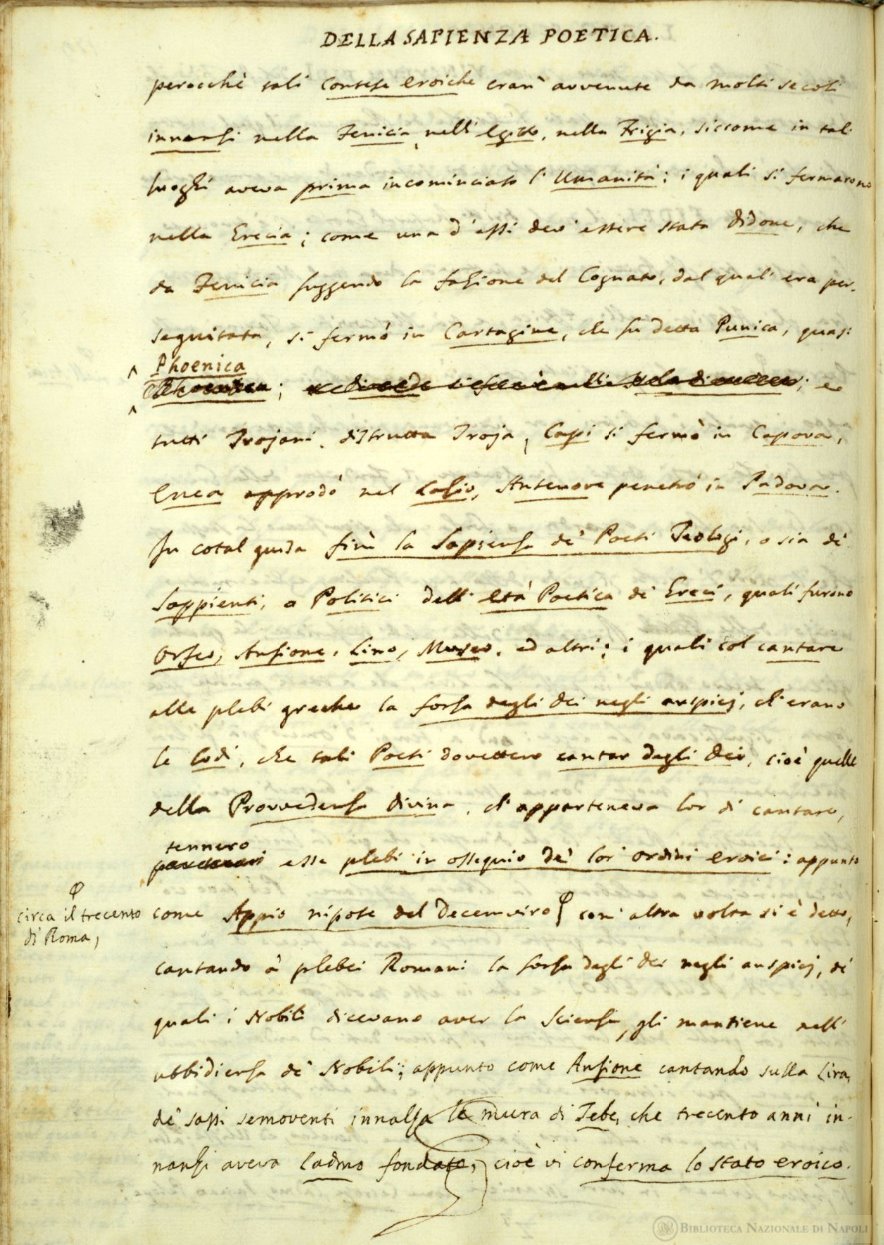 DELLA SAPIENZA POETICA.
perocchè tali contese eroiche eran' avvenute da molti secoli
innanzi nella Fenicia, nell' Egitto, nella Frigia, siccome in tali
luoghi aveva prima incominciato l' Umanità; i quali si fermarono
nella Grecia; come una d' essi dev' essere stata Didone, che
da Fenicia fuggendo la fazione del Cognato, dal quale era per-
seguitata, si fermò in Cartagine, che fu detta Punica, quasi
Phoenica
; e
tutti Trojani, distrutta Troja, Capi si fermò in Capova,
Enea approdò nel Lazio, Antenore penetrò in Padova.
In cotal guisa finì la Sapienza de' Poeti Teologi, o sia de'
Sappienti, o Politici dell' età Poetica de' Greci, quali furono
Orfeo, Anfione, Lino, Museo, ed altri; i quali col cantare
alle plebi greche la forza degli dei negli auspicj, ch' erano
le lodi, che tali Poeti dovettero cantar degli Dei, cioè quelle
della Provvedenza divina, ch' apparteneva lor di cantare,
tennero
esse plebi in ossequio de' lor' ordini eroici: appunto
φ
circa il trecento
di Roma,
come Appio nipote del Decemviro φ com' altra volta si è detto,
cantando a' plebei Romani la forza degli dei negli auspicj, de'
quali i Nobili dicevano aver la Scienza, gli mantiene nell'
ubbidienza de' Nobili; appunto come Anfione cantando sulla Lira,
de' sassi semoventi innalza le mura di Tebe, che trecento anni in-
nanzi aveva Cadmo fondate, cioè vi conferma lo stato eroico.
BIBLIOTECA NAZIONALE DI NAPOLI